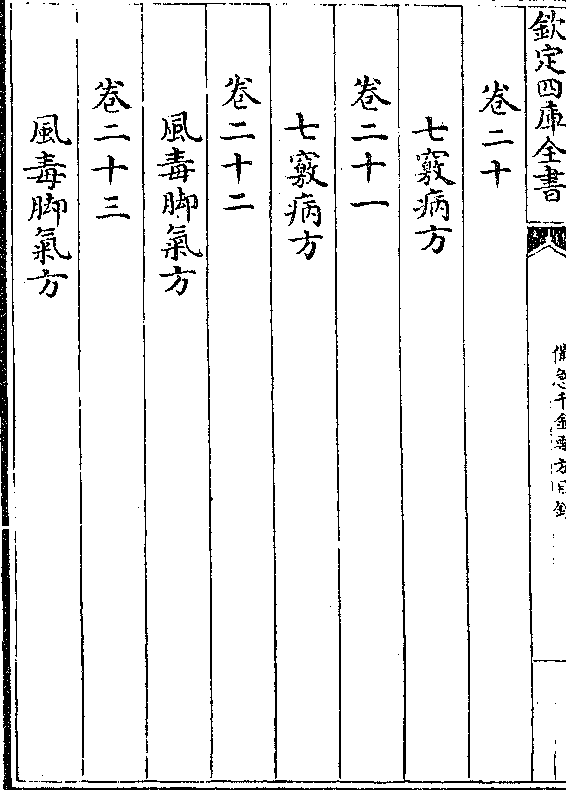 欽定四庫全書
備急千金要方目錄
卷二十
七竅病方
卷二十一
七竅病方
卷二十二
風毒脚氣方
卷二十三
風毒脚氣方